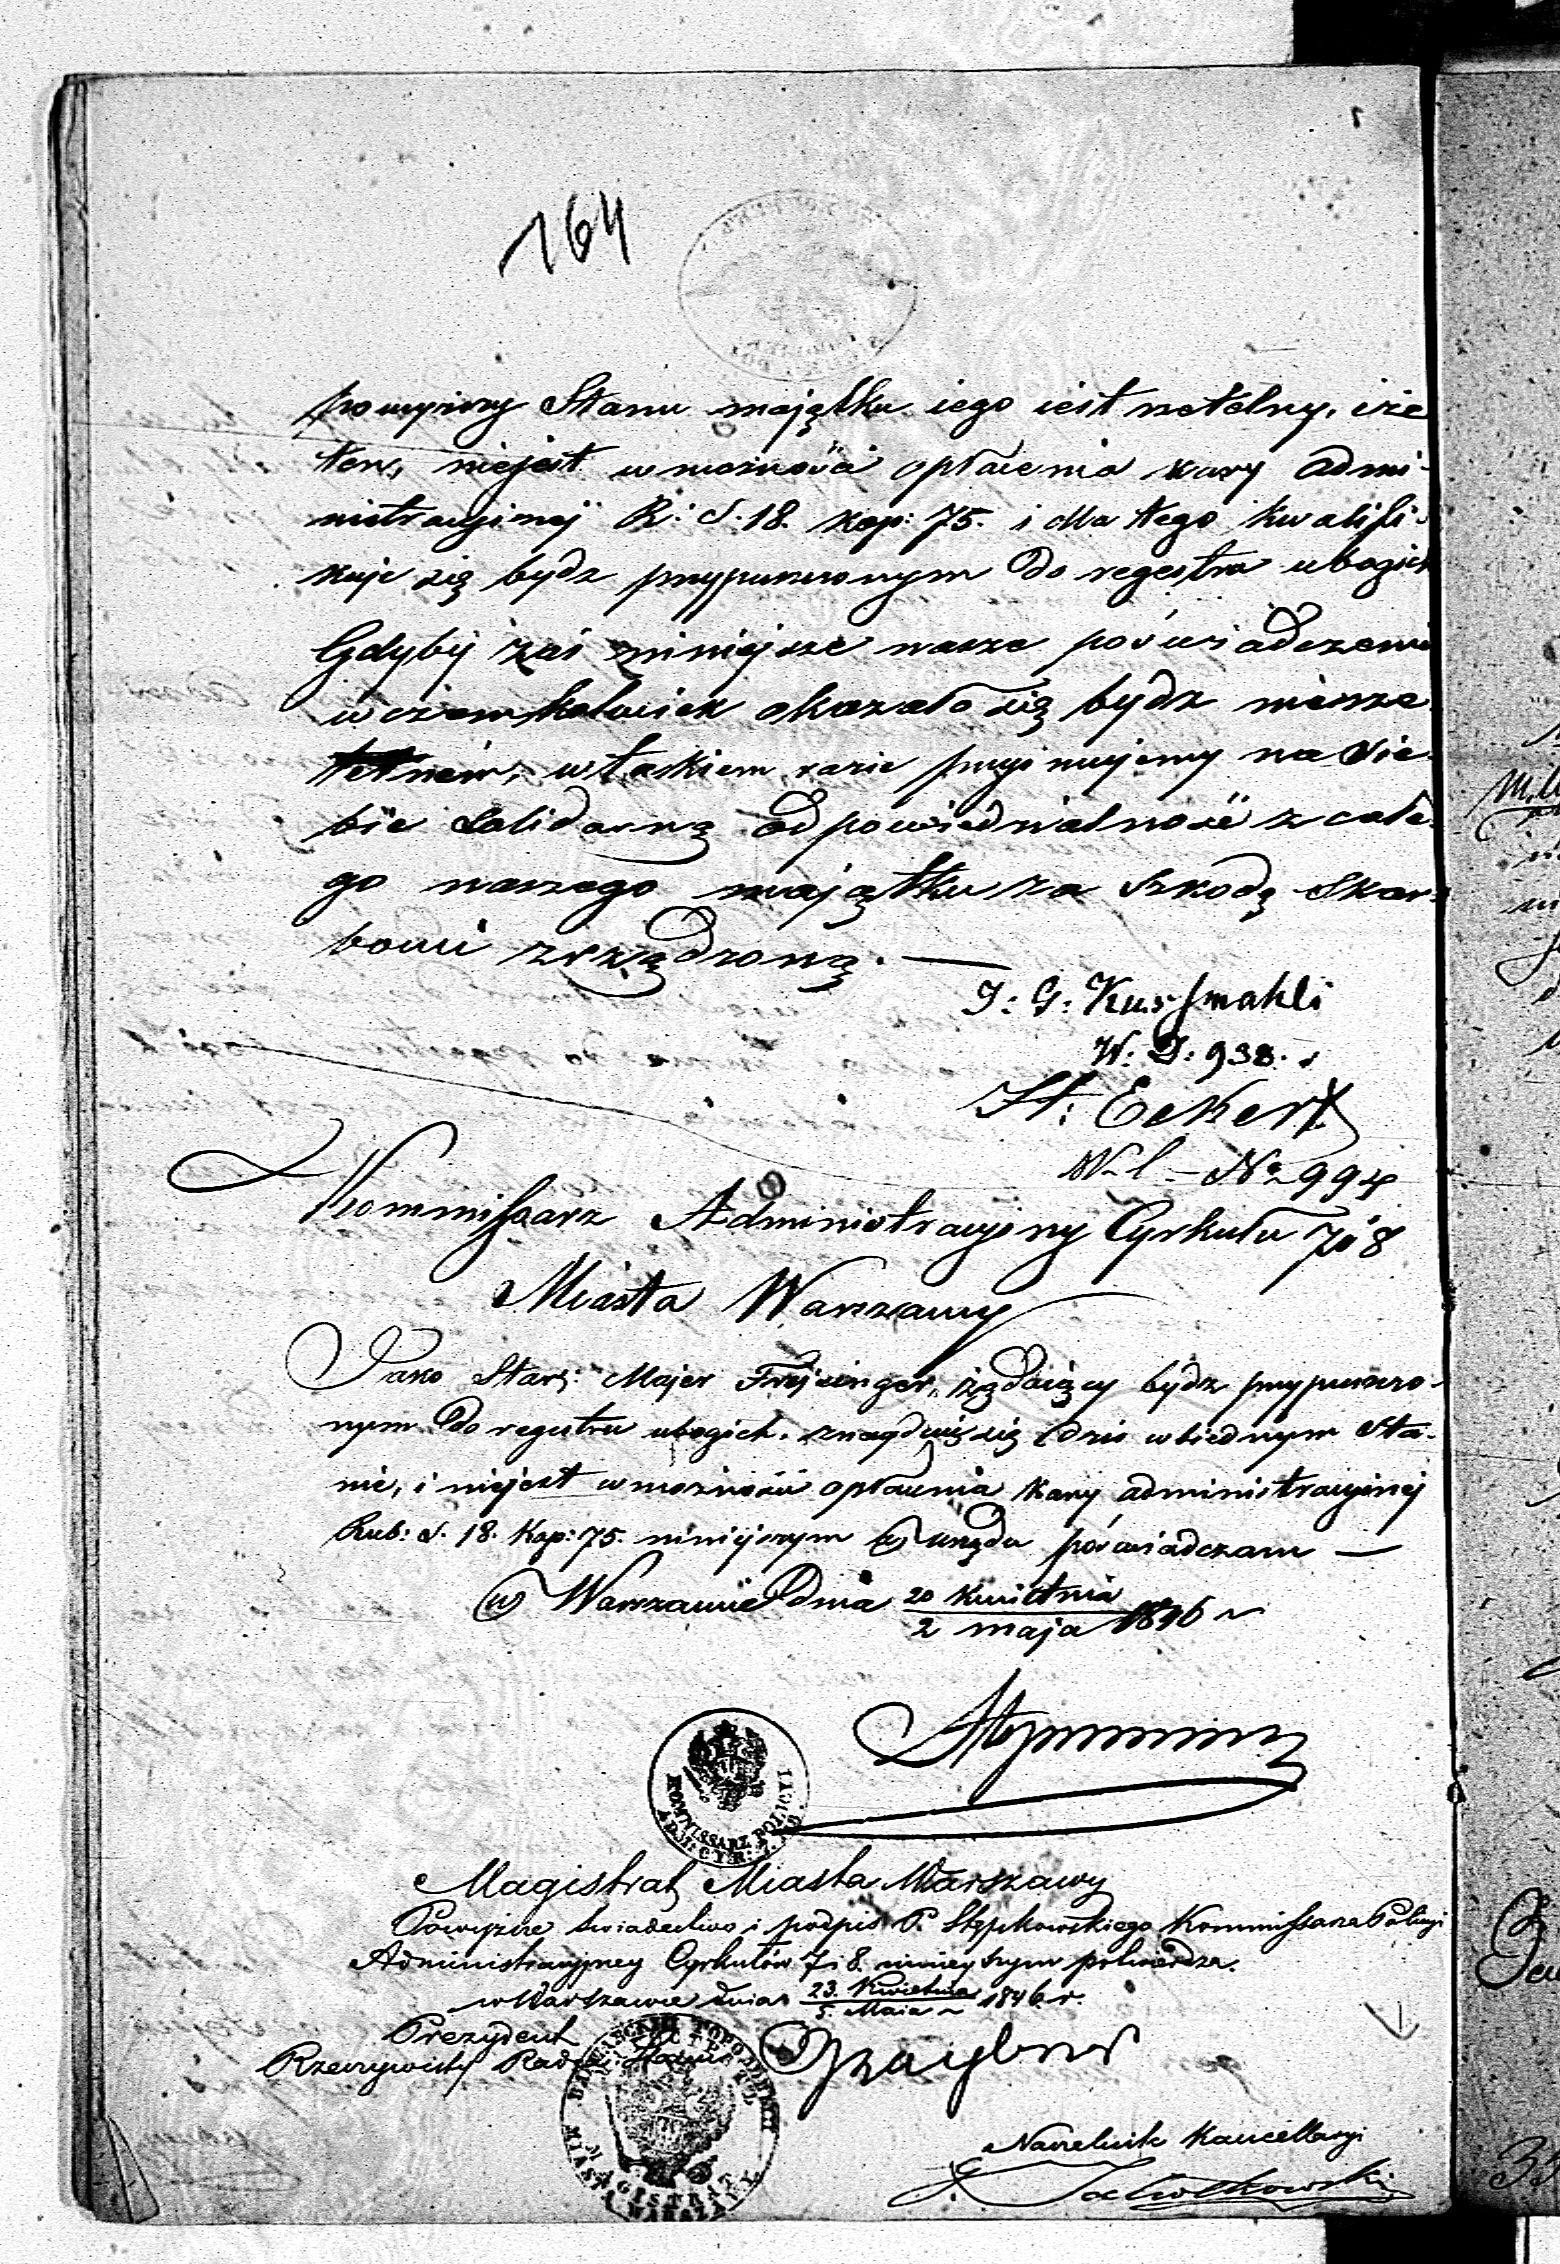 164
powyższy Stanu majątku iego iest rzetelny, iże
ten, niejest w możności opłacenia kary admi-
nistracyjnej R: S. 18. kop: 75. i dla tego kwalifi-
kuje się bydz przypuszczonym do regestra ubogich
Gdyby zaś niniejsze nasze poświadczenie
w czem kolwiek okazało się bydz niersze
telném, w takiem razie przyjmujemy na Sie-
bie Solidarną odpowiedzialność z całe-
go naszego majątku za Szkodę Skar-
bowi zrządzoną. —
J: G: Kurfmahli
W: D: 938.
St: Eckert
W-l - No 994
Kommissarz Administracyjny Cyrkułu 7 i 8
Miasta Warszawy
Jako Star: Majer Frejzinger, żądaiący bydz przypuszczo-
nym do regestru ubogich, znayduie się dzis w biednym Sta-
nie, i niejest w możności opłacenia kary administracyjnej
Rub: S. 18. Kop: 75. niniejszym z urzędu poświadczam —
w Warszawie dnia 20 kwietnia / 2 maja 1846
KOMMISSARZ POLICYI
ADM: CYR: 7 I 8
Magistrat Miasta Warszawy
Powyższe świadectwo i podpis P. Stępkowskiego Kommissarza Policyi
Administracyjney Cyrkułów 7 i 8. ninieyszym potwierdza.
w Warszawie dnia 23. Kwietnia / 5. Maia 1846 r.
Prezydent
Rzeczywisty Radca Stanu
MAGISTRAT
MIASTA WARSZAWY
Naczelnik Kancellaryi